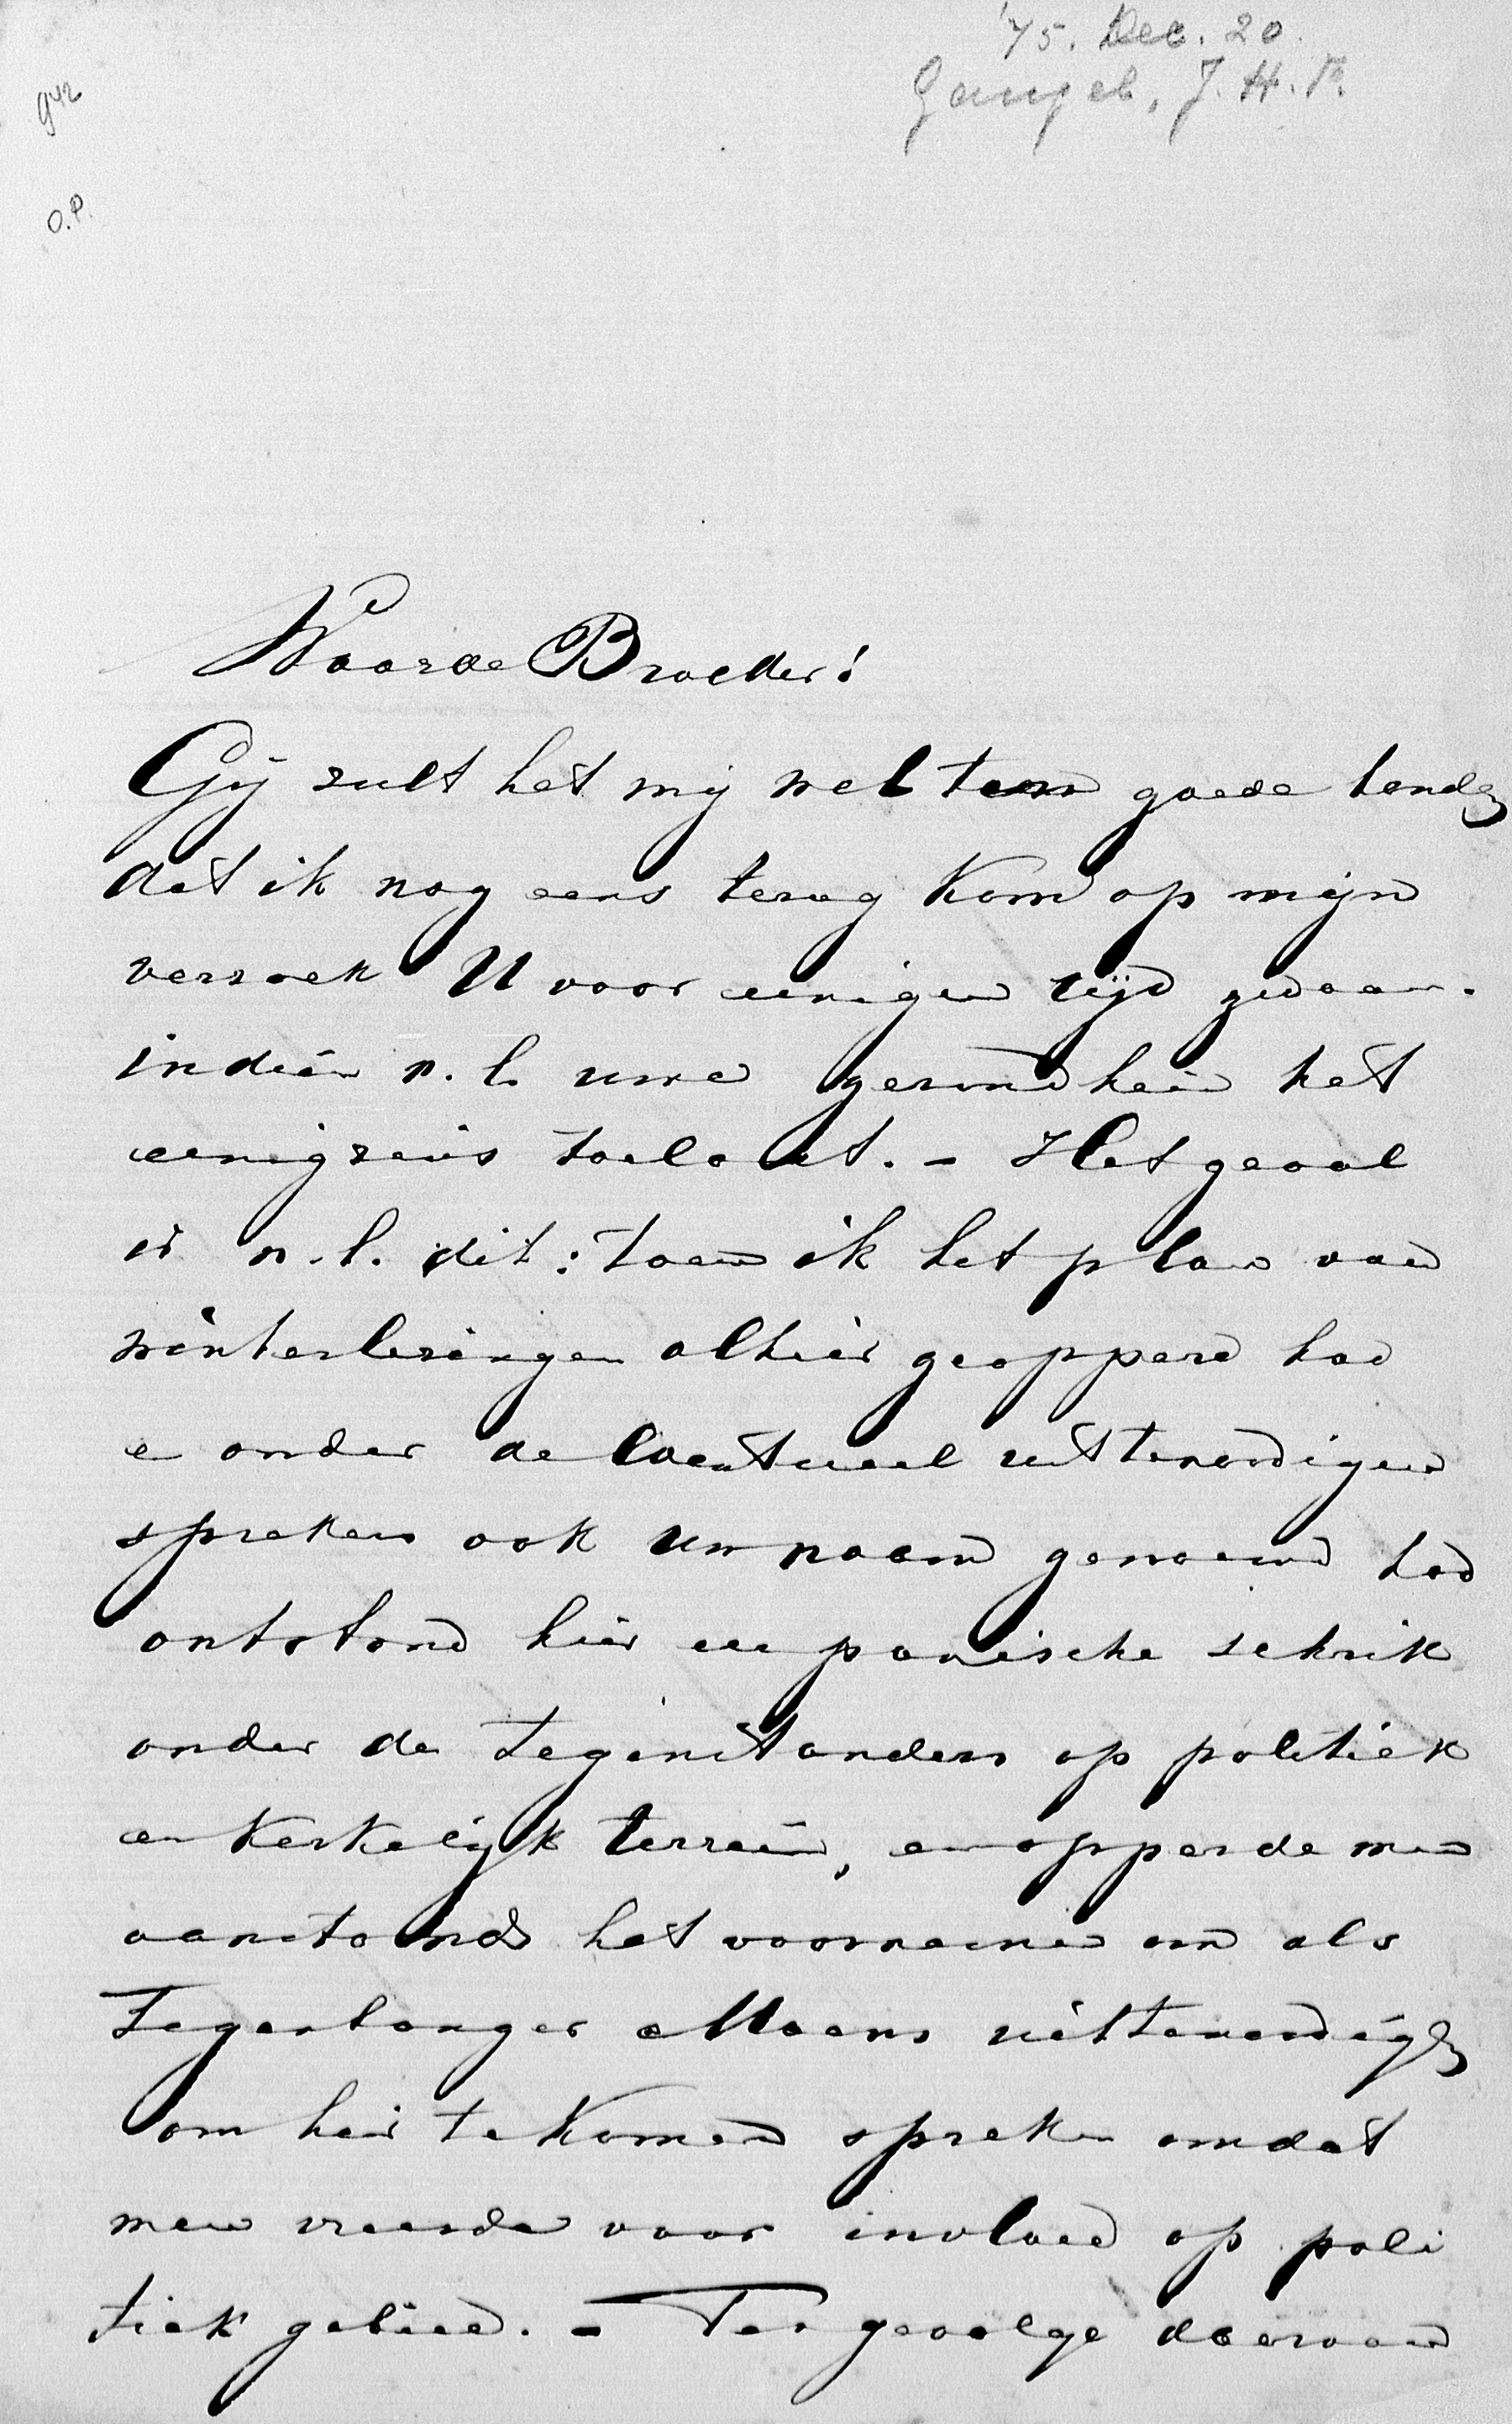 '75. Dec. 20.
J. H.
942
O.P.
Waarde Broeder!
Gij zult het mij wel ten goede houden
dat ik nog eens terug kom op mijn
verzoek U voor eenigen tijd gedaan.
indien n.l. uwe gezondheid het
eenigzins toelaat. - Het geval
is n.l. dit: toen ik het plan van
winterlezingen alhier geopperd had
e onder de eventueel uittenoodigen
sprekers ook uw naam genoemd had
ontstond hier een panische schrik
onder de tegenstanders op politiek
en kerkelijk terrein, en opperde men
aanstonds het voornemen om als
tegenhanger uittenoodigen
om hier te komen spreken omdat
men vreesde voor invloed op poli
tiek gebied. - Ten gevolge daarvan